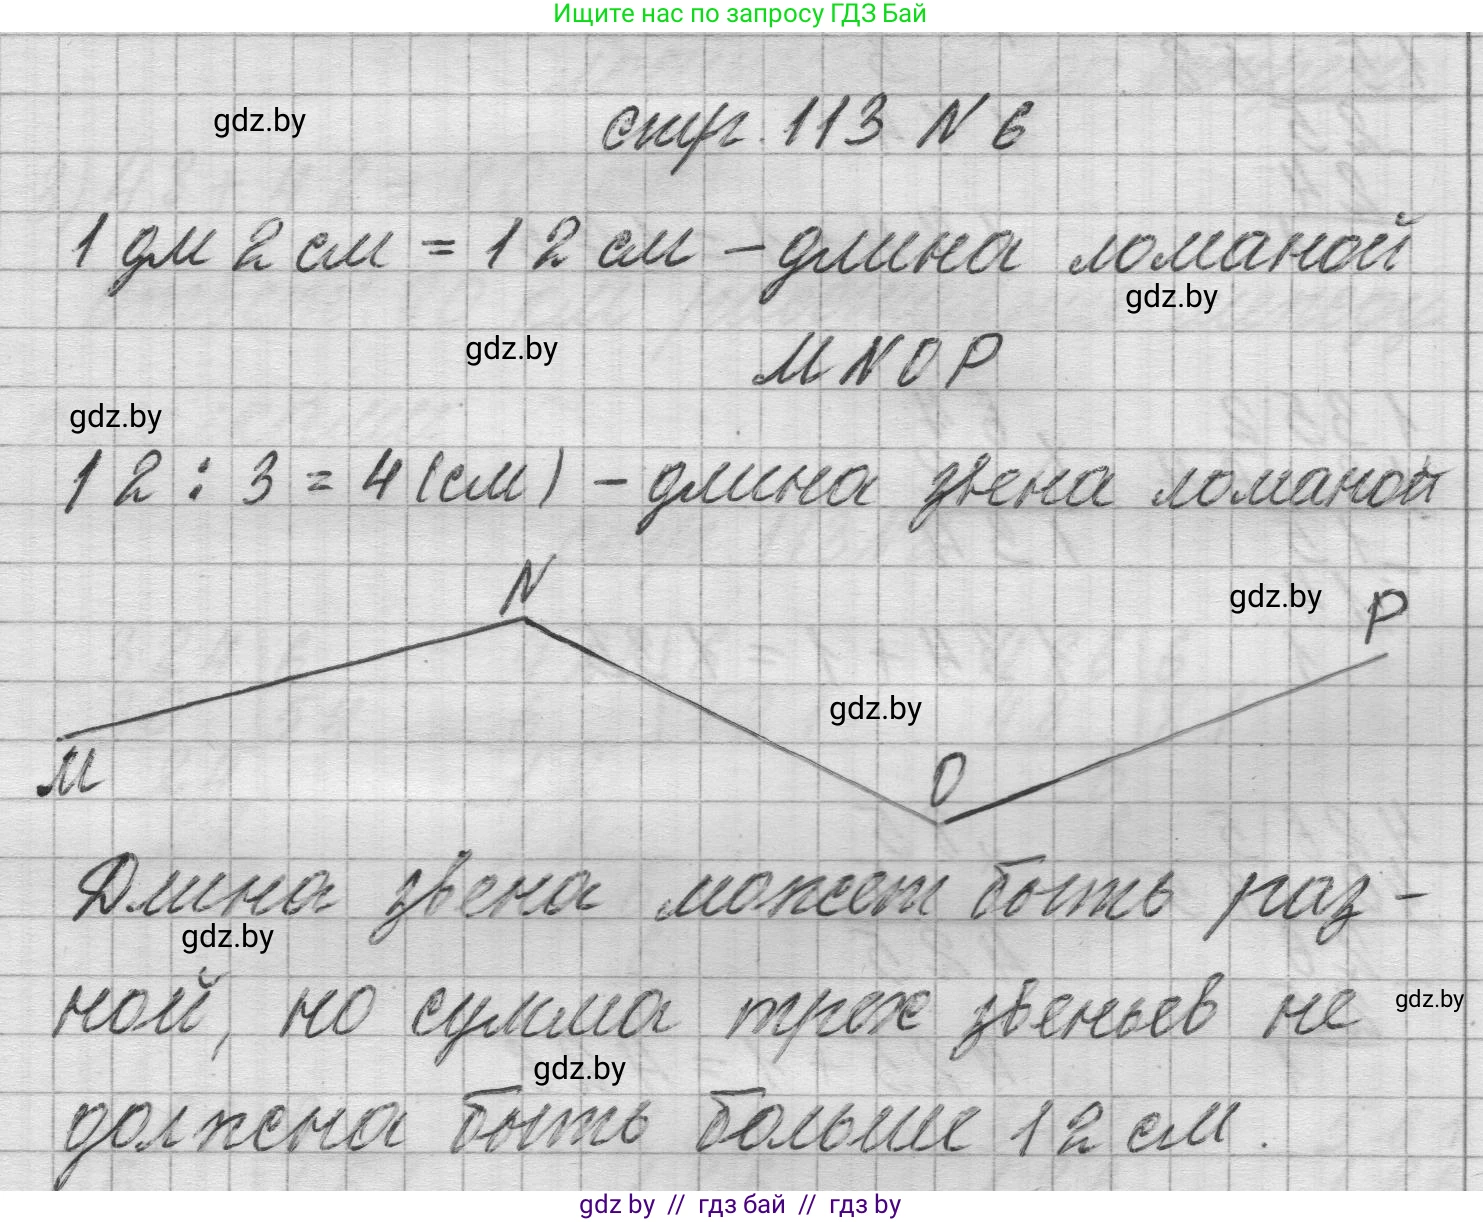 Ищите нас по запросу ГДЗ Бай
gdz.by
стр. 113 N 6
1 дм 2 см = 12 см - длина ломаной
gdz.by
gdz.by
MNOP
gdz.by
12 : 3 = 4 (см) - длина звена ломаной
N
gdz.by
P
gdz.by
M
O
Длина звена может быть раз-
gdz.by
ной, но сумма трех звеньев не
gdz.by
gdz.by
должна быть больше 12 см.
gdz.by // гдз бай // гдз by